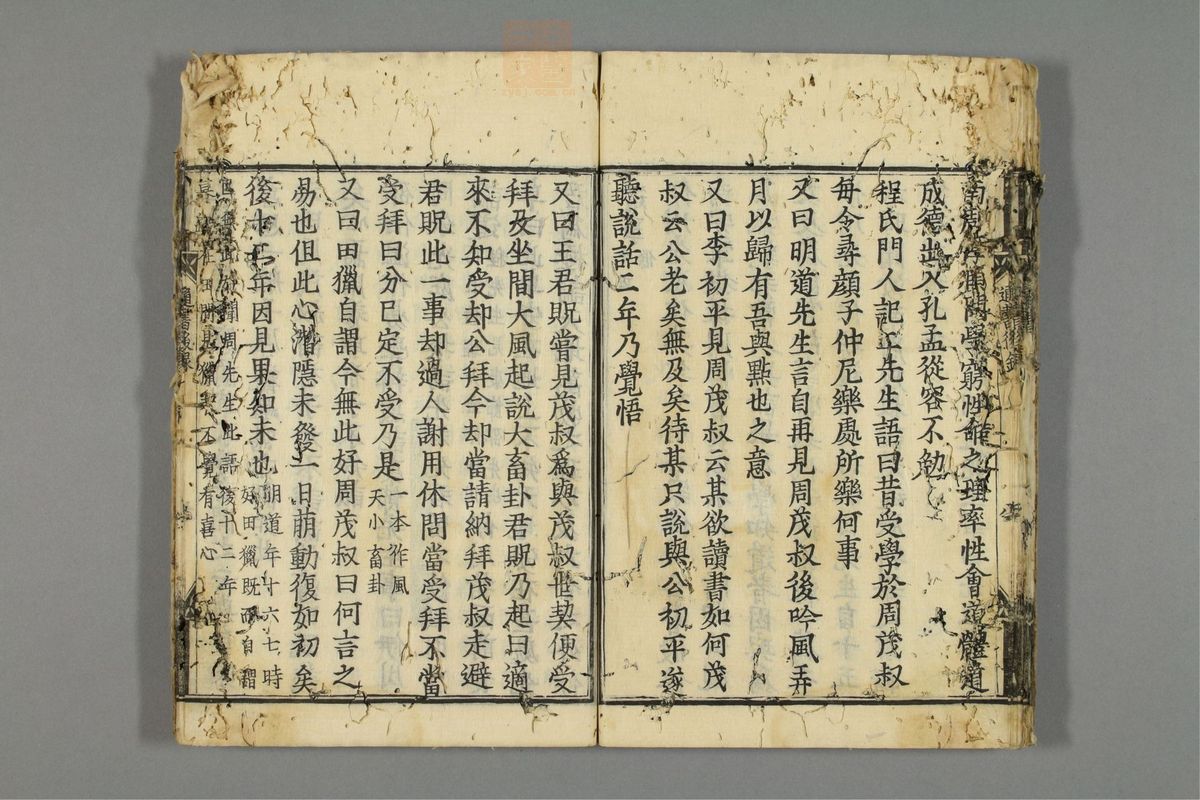 學窮性命之理率性會道體道
成德出入孔孟從容不勉
程氏門人記二先生語曰昔受學於周茂叔
每令尋顔子仲尼樂處所樂何事
又曰明道先生言自再見周茂叔後吟風弄
月以歸有吾與點也之意
又曰李初平見周茂叔云某欲讀書如何茂
叔云公老矣無及矣待某只說與公初平遂
聽說話二年乃覺悟
又曰王君貺嘗見茂叔爲與茂叔世契便受
拜及坐間大風起說大畜卦君貺乃起曰適
來不知受却公拜今却當請納拜茂叔走避
君貺此一事却過人謝用休問當受拜不當
受拜曰分已定不受乃是
一本作風
天小畜卦
又曰田獵自謂今無此好周茂叔曰何言之
易也但此心潛隱未發一日萌動復如初矣
後十二年因見果知未也
明道年十六七時
好田獵既而自謂
周先生此語後十二年
田間見獵者不覺有喜心
通書後錄
zysj.com.cn